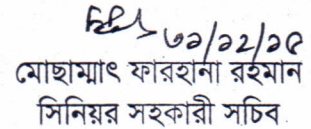 ৩১/১২/১৫
মোছাম্মাৎ ফারহানা রহমান
সিনিয়র সহকারী সচিব